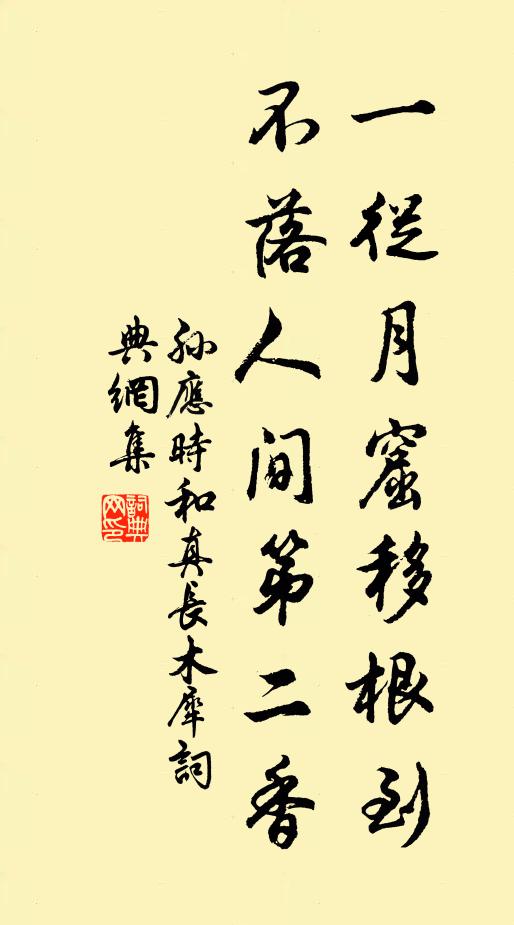 一從月窟移根到
不落人間第二香
孫應時和真長木犀詞
典網集
詞典網印